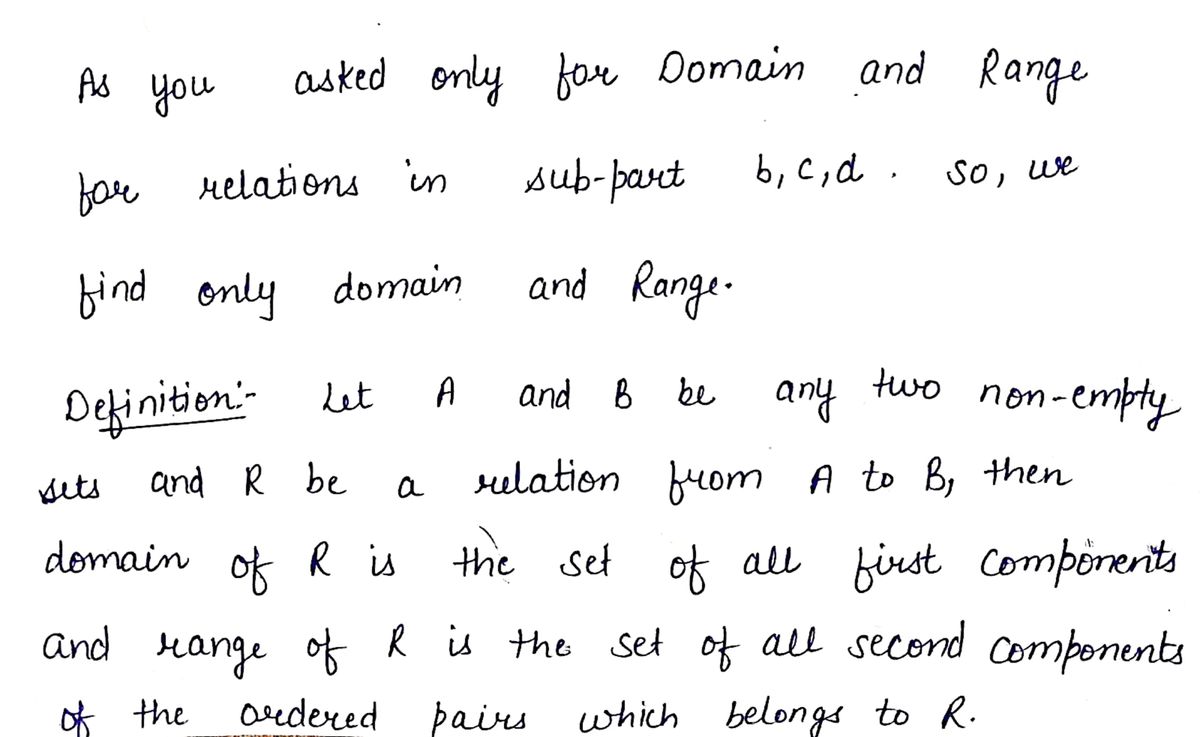 As you asked only for Domain and Range
for relations in sub-part b, c, d . so, we
find only domain and Range.
Definition:- Let A and B be any two non-empty
sets and R be a relation from A to B, then
domain of R is the set of all first components
and range of R is the set of all second components
of the ordered pairs which belongs to R.